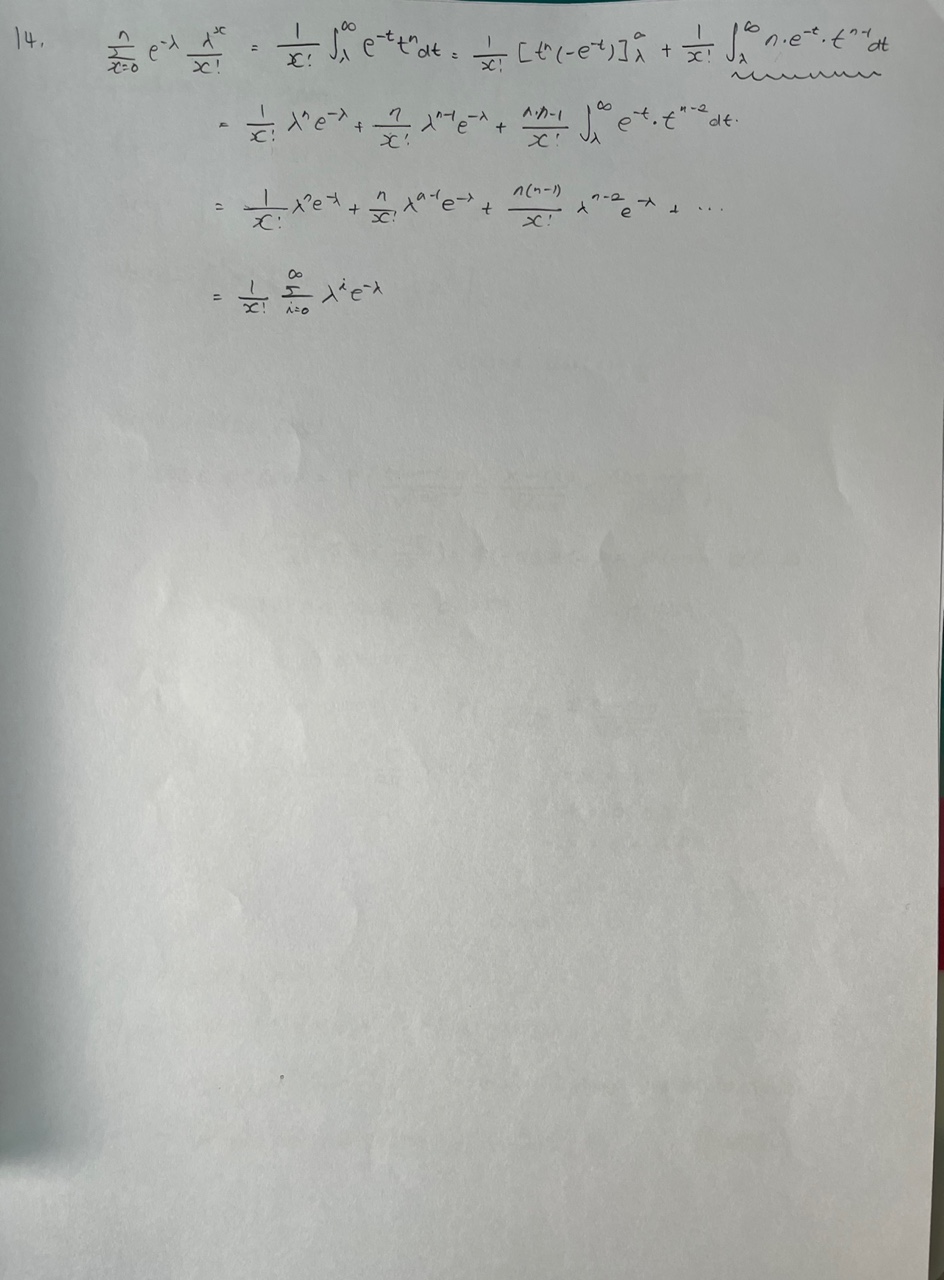 14. \sum_{x=0}^{n} e^{-λ} \frac{λ^x}{x!} = \frac{1}{x!} \int_λ^∞ e^{-t} t^n dt = \frac{1}{x!} [t^n(-e^{-t})]_λ^∞ + \frac{1}{x!} \int_λ^∞ n \cdot e^{-t} \cdot t^{n-1} dt
= \frac{1}{x!} λ^n e^{-λ} + \frac{n}{x!} λ^{n-1} e^{-λ} + \frac{n \cdot n-1}{x!} \int_λ^∞ e^{-t} \cdot t^{n-2} dt.
= \frac{1}{x!} λ^n e^{-λ} + \frac{n}{x!} λ^{n-1} e^{-λ} + \frac{n(n-1)}{x!} λ^{n-2} e^{-λ} + ...
= \frac{1}{x!} \sum_{i=0}^{∞} λ^i e^{-λ}